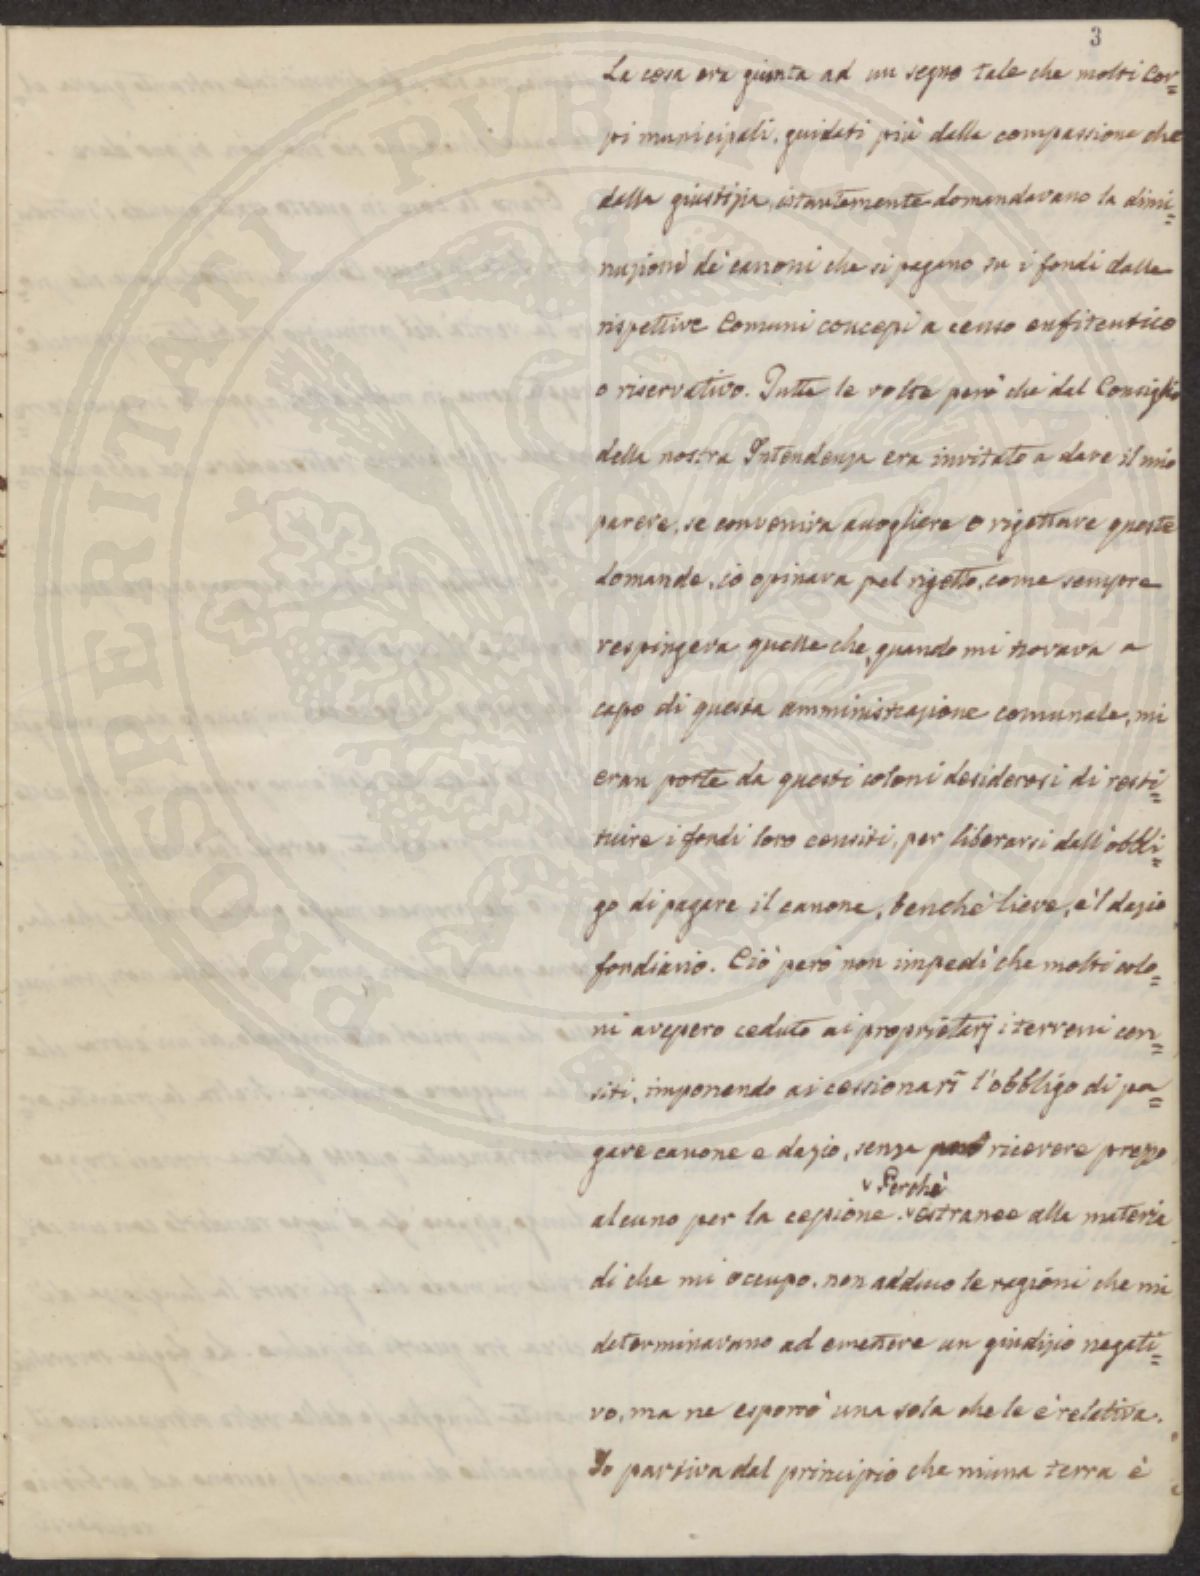 3
La cosa era giunta ad un segno tale che molti Cor=
pi municipali, guidati più dalla compassione che
dalla giustizia, istantemente domandavano la dimi=
nuzione de' canoni che si pagano su i fondi dalle
rispettive Comuni concessi a censo enfiteutico
o riservativo. Tutte le volte però che dal Consiglio
della nostra Intendenza era invitato a dare il mio
parere, se conveniva accogliere o rigettare queste
domande, io opinava pel rigetto, come sempre
respingeva quelle che, quando mi trovava a
capo di questa amministrazione comunale, mi
eran porte da questi coloni desiderosi di resti=
tuire i fondi loro censiti, per liberarsi dall'obbli=
go di pagare il canone, benchè lieve, e'l dazio
fondiario. Ciò però non impedì che molti colo=
ni avessero ceduto ai proprietarj i terreni cen=
siti, imponendo ai cessionarî l'obbligo di pa=
gare canone e dazio, senza ricevere prezzo
alcuno per la cessione. Perchè estranee alla materia
di che mi occupo, non adduco le ragioni che mi
determinavano ad emettere un giudizio negati=
vo, ma ne esporrò una sola che le è relativa.
Io partiva dal principio che niuna terra è
PROSPERITATI PUBLICAE AUGENDAE